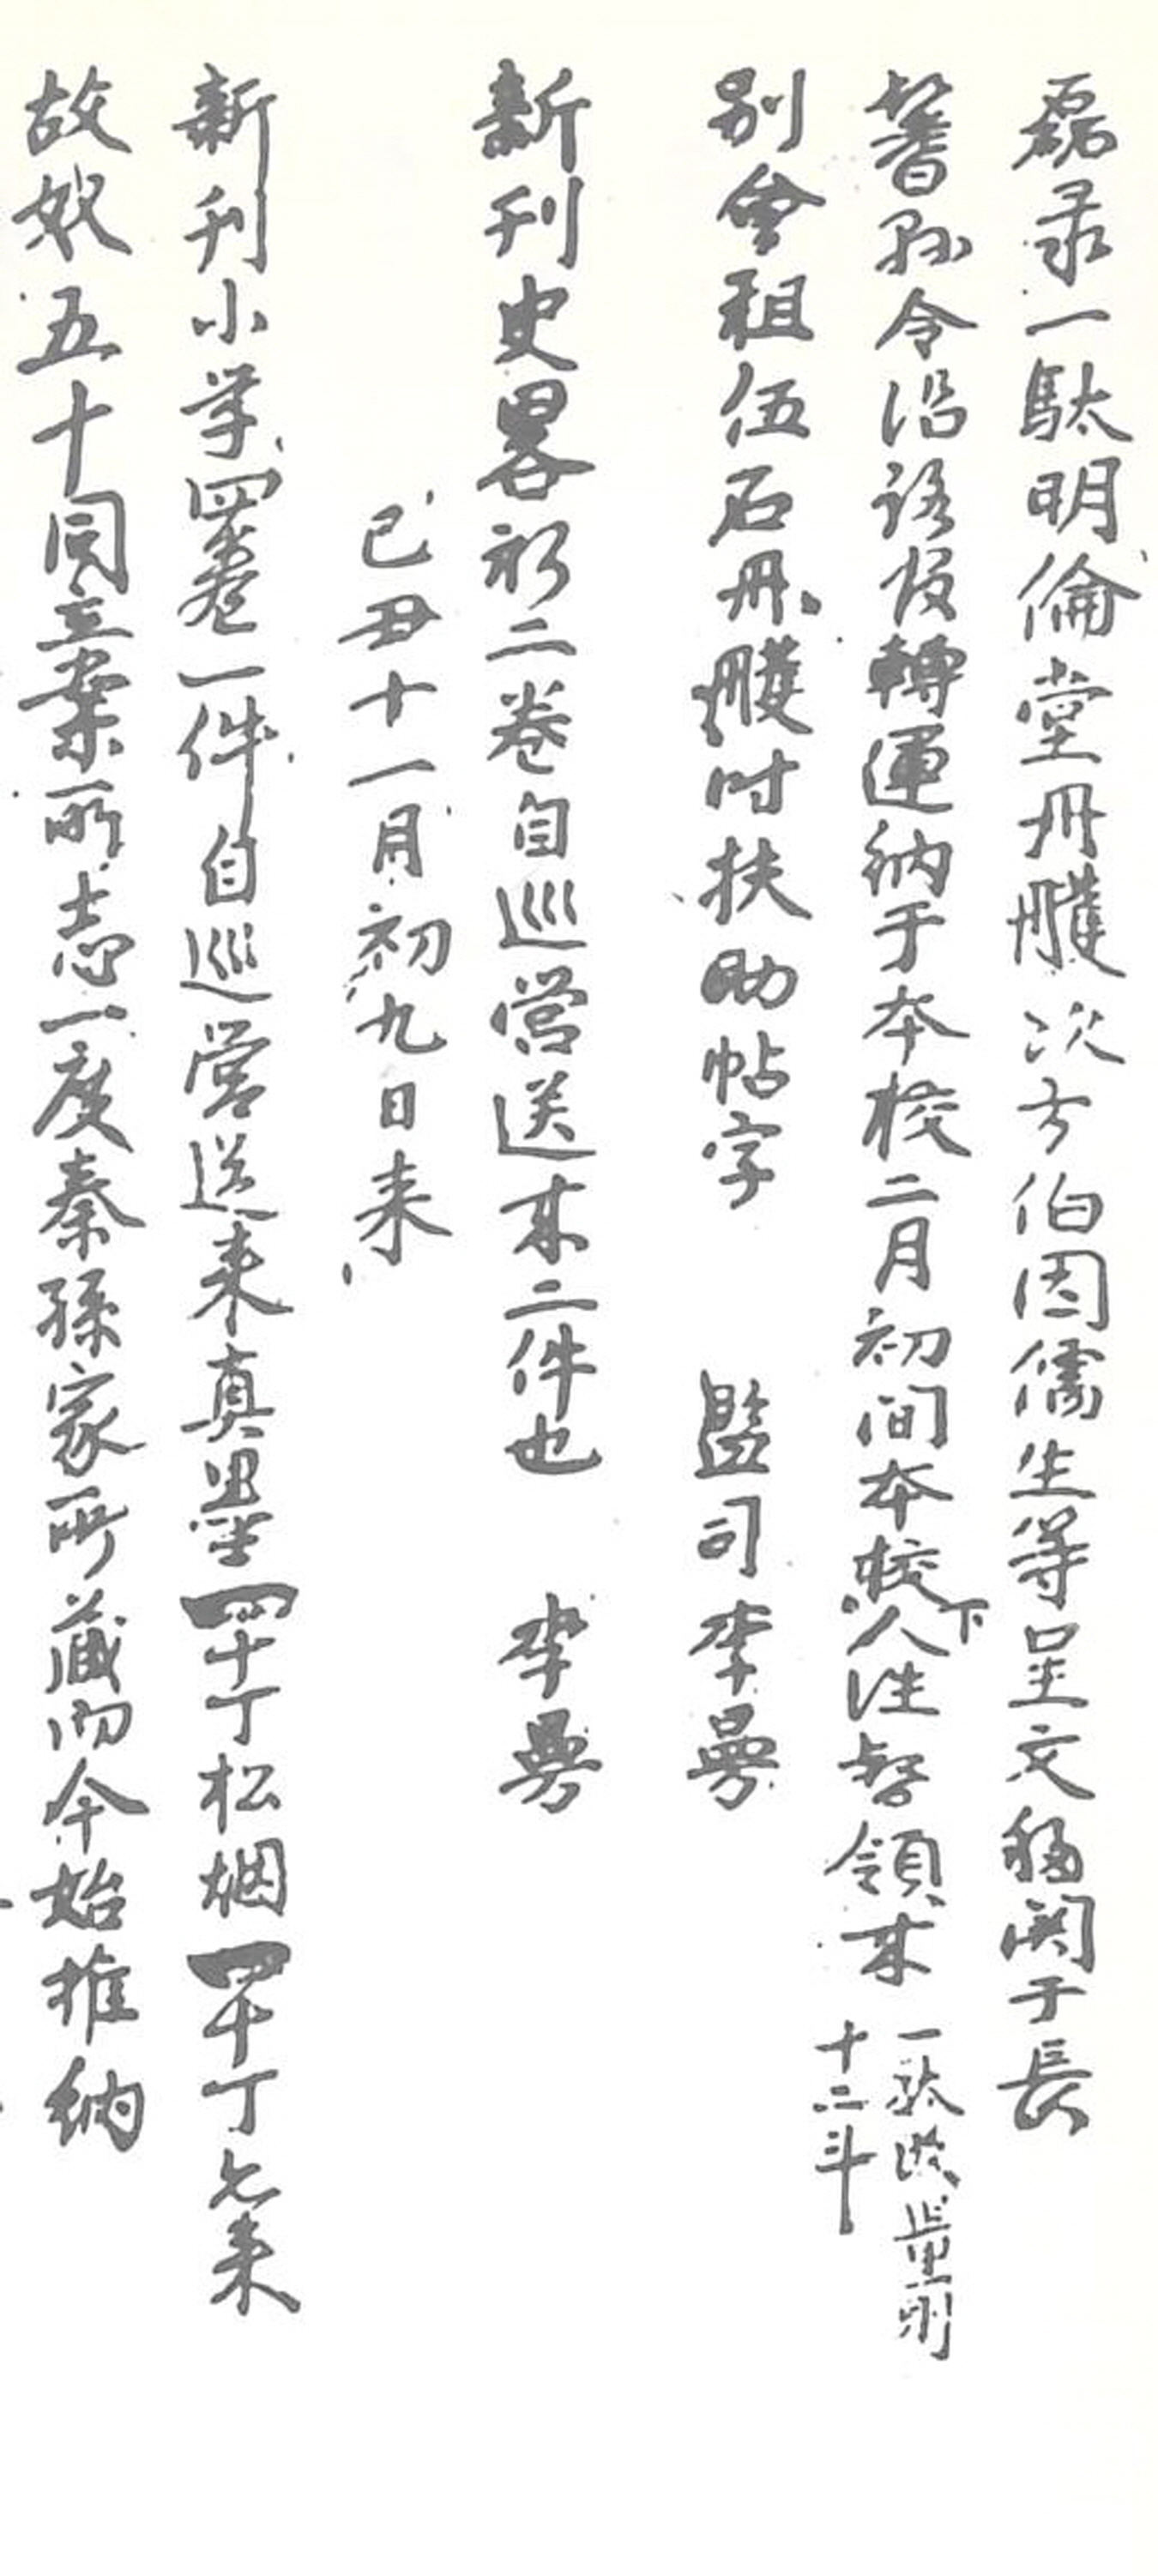 磊彔一馱明倫堂丹雘次方伯因儒生等呈文移関于長
鬐縣令沿路役轉運納于本校二月初間本校下人性哲領来一馱
十二斗
別會租伍石丹雘時扶助帖字 監司李曼
新刊史畧初二卷自巡营送来二件也 李曼
己丑十一月初九日来
新刊小学四卷一件自巡营送来真墨四十丁松烟四十丁允来
故奴五十同立案所志一度秦孫家所藏而今始推納